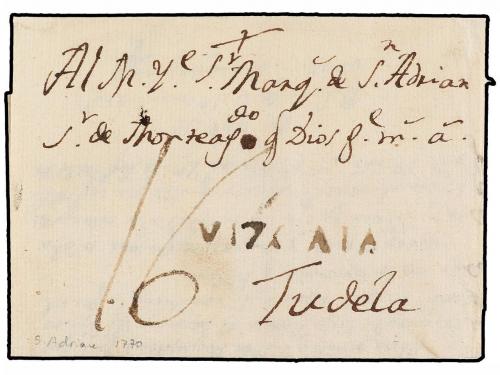 Al M. Y.e S.r Marq.s de S.n Adrian
S.r de Monteag.do q Dios g.e m.s a.s
VIZCAIA
Tudela
S. Adrian 1770